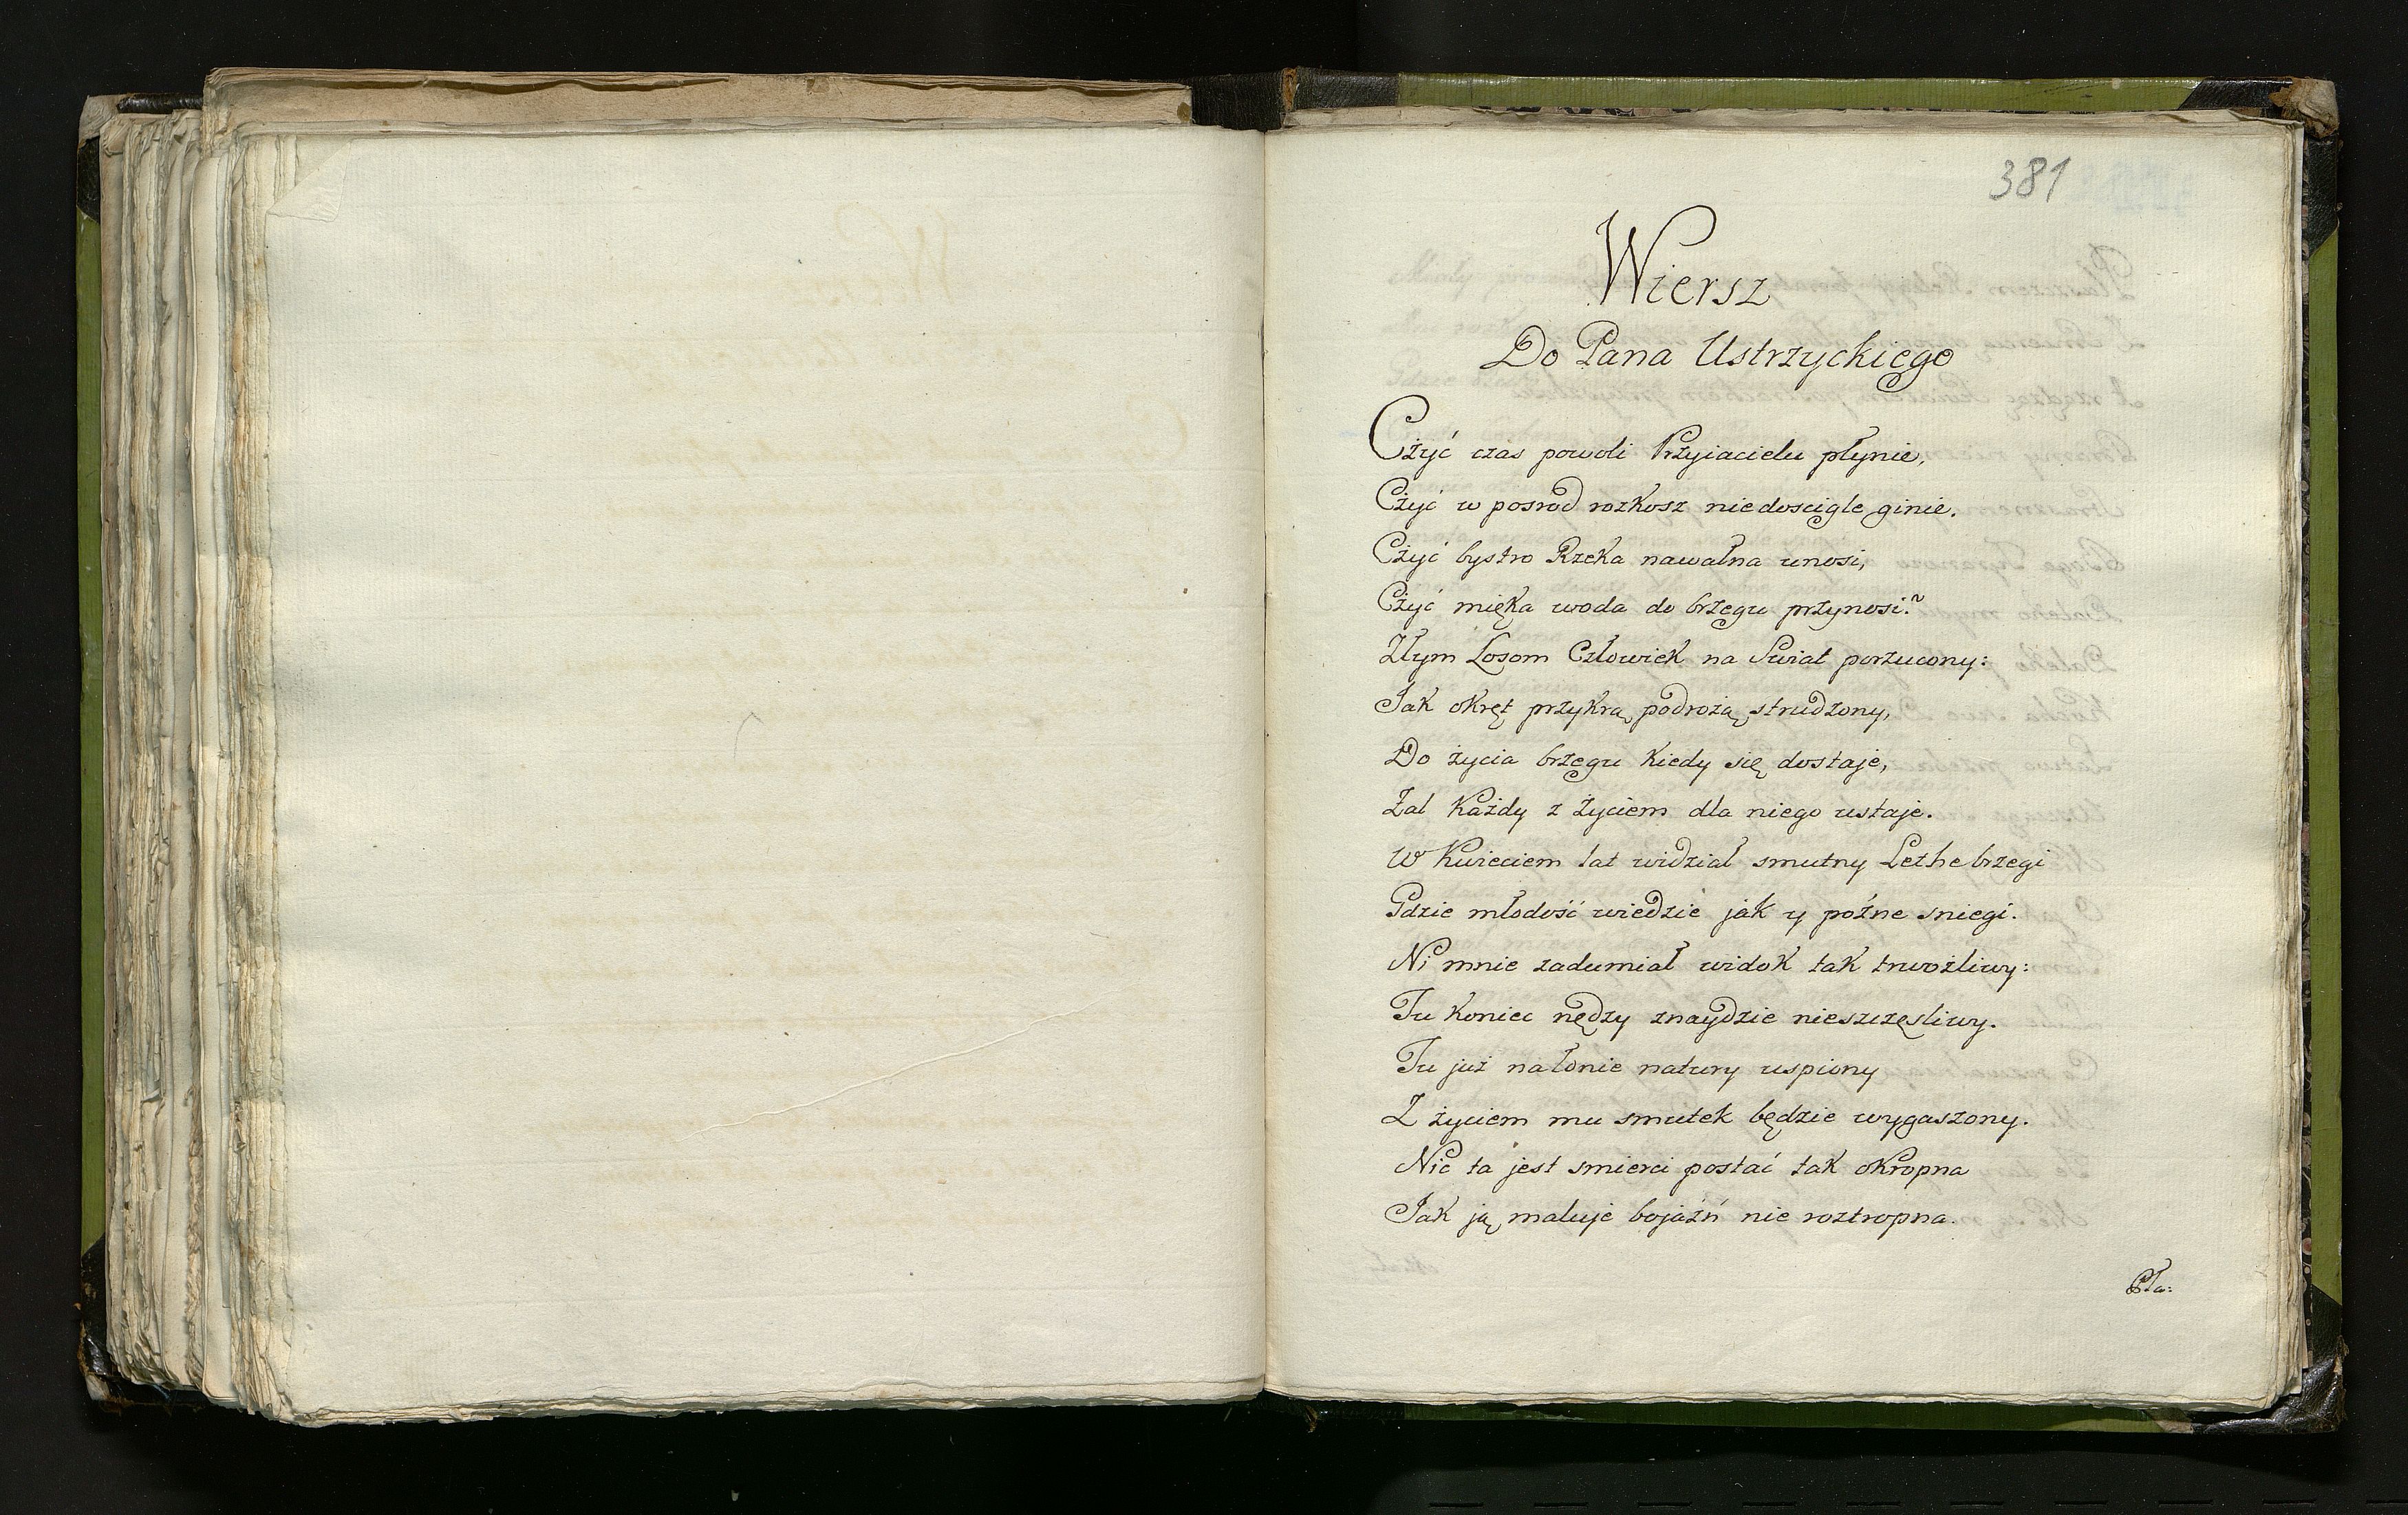 381
Wiersz
Do Pana Ustrzyckiego
Cżyć czas powoli Przyiacielu płynie,
Cżyć w posrod rozkosz niedoscigle ginie.
Cżyć bystro Rzeka nawałna unosi,
Cżyć mięka woda do brzegu przynosi?
Złym Losom Człowiek na Swiat porzucony:
Jak okręt przykrą podrożą strudzony,
Do życia brzegu kiedy się dostaje,
Żal każdy z życiem dla niego ustaje.
W kwieciem lat widział smutny Lethe brzegi
Gdzie młodość wiedzie jak y poźne sniegi.
Ni mnie zadumiał widok tak trwożliwy:
Tu koniec nędzy znaydzie nieszczęsliwy.
Tu już na łonie natury uspiony
Z życiem mu smutek będzie wygaszony.
Nie ta jest smierci postać tak okropna
Jak ją maluje bojaźń nie roztropna.